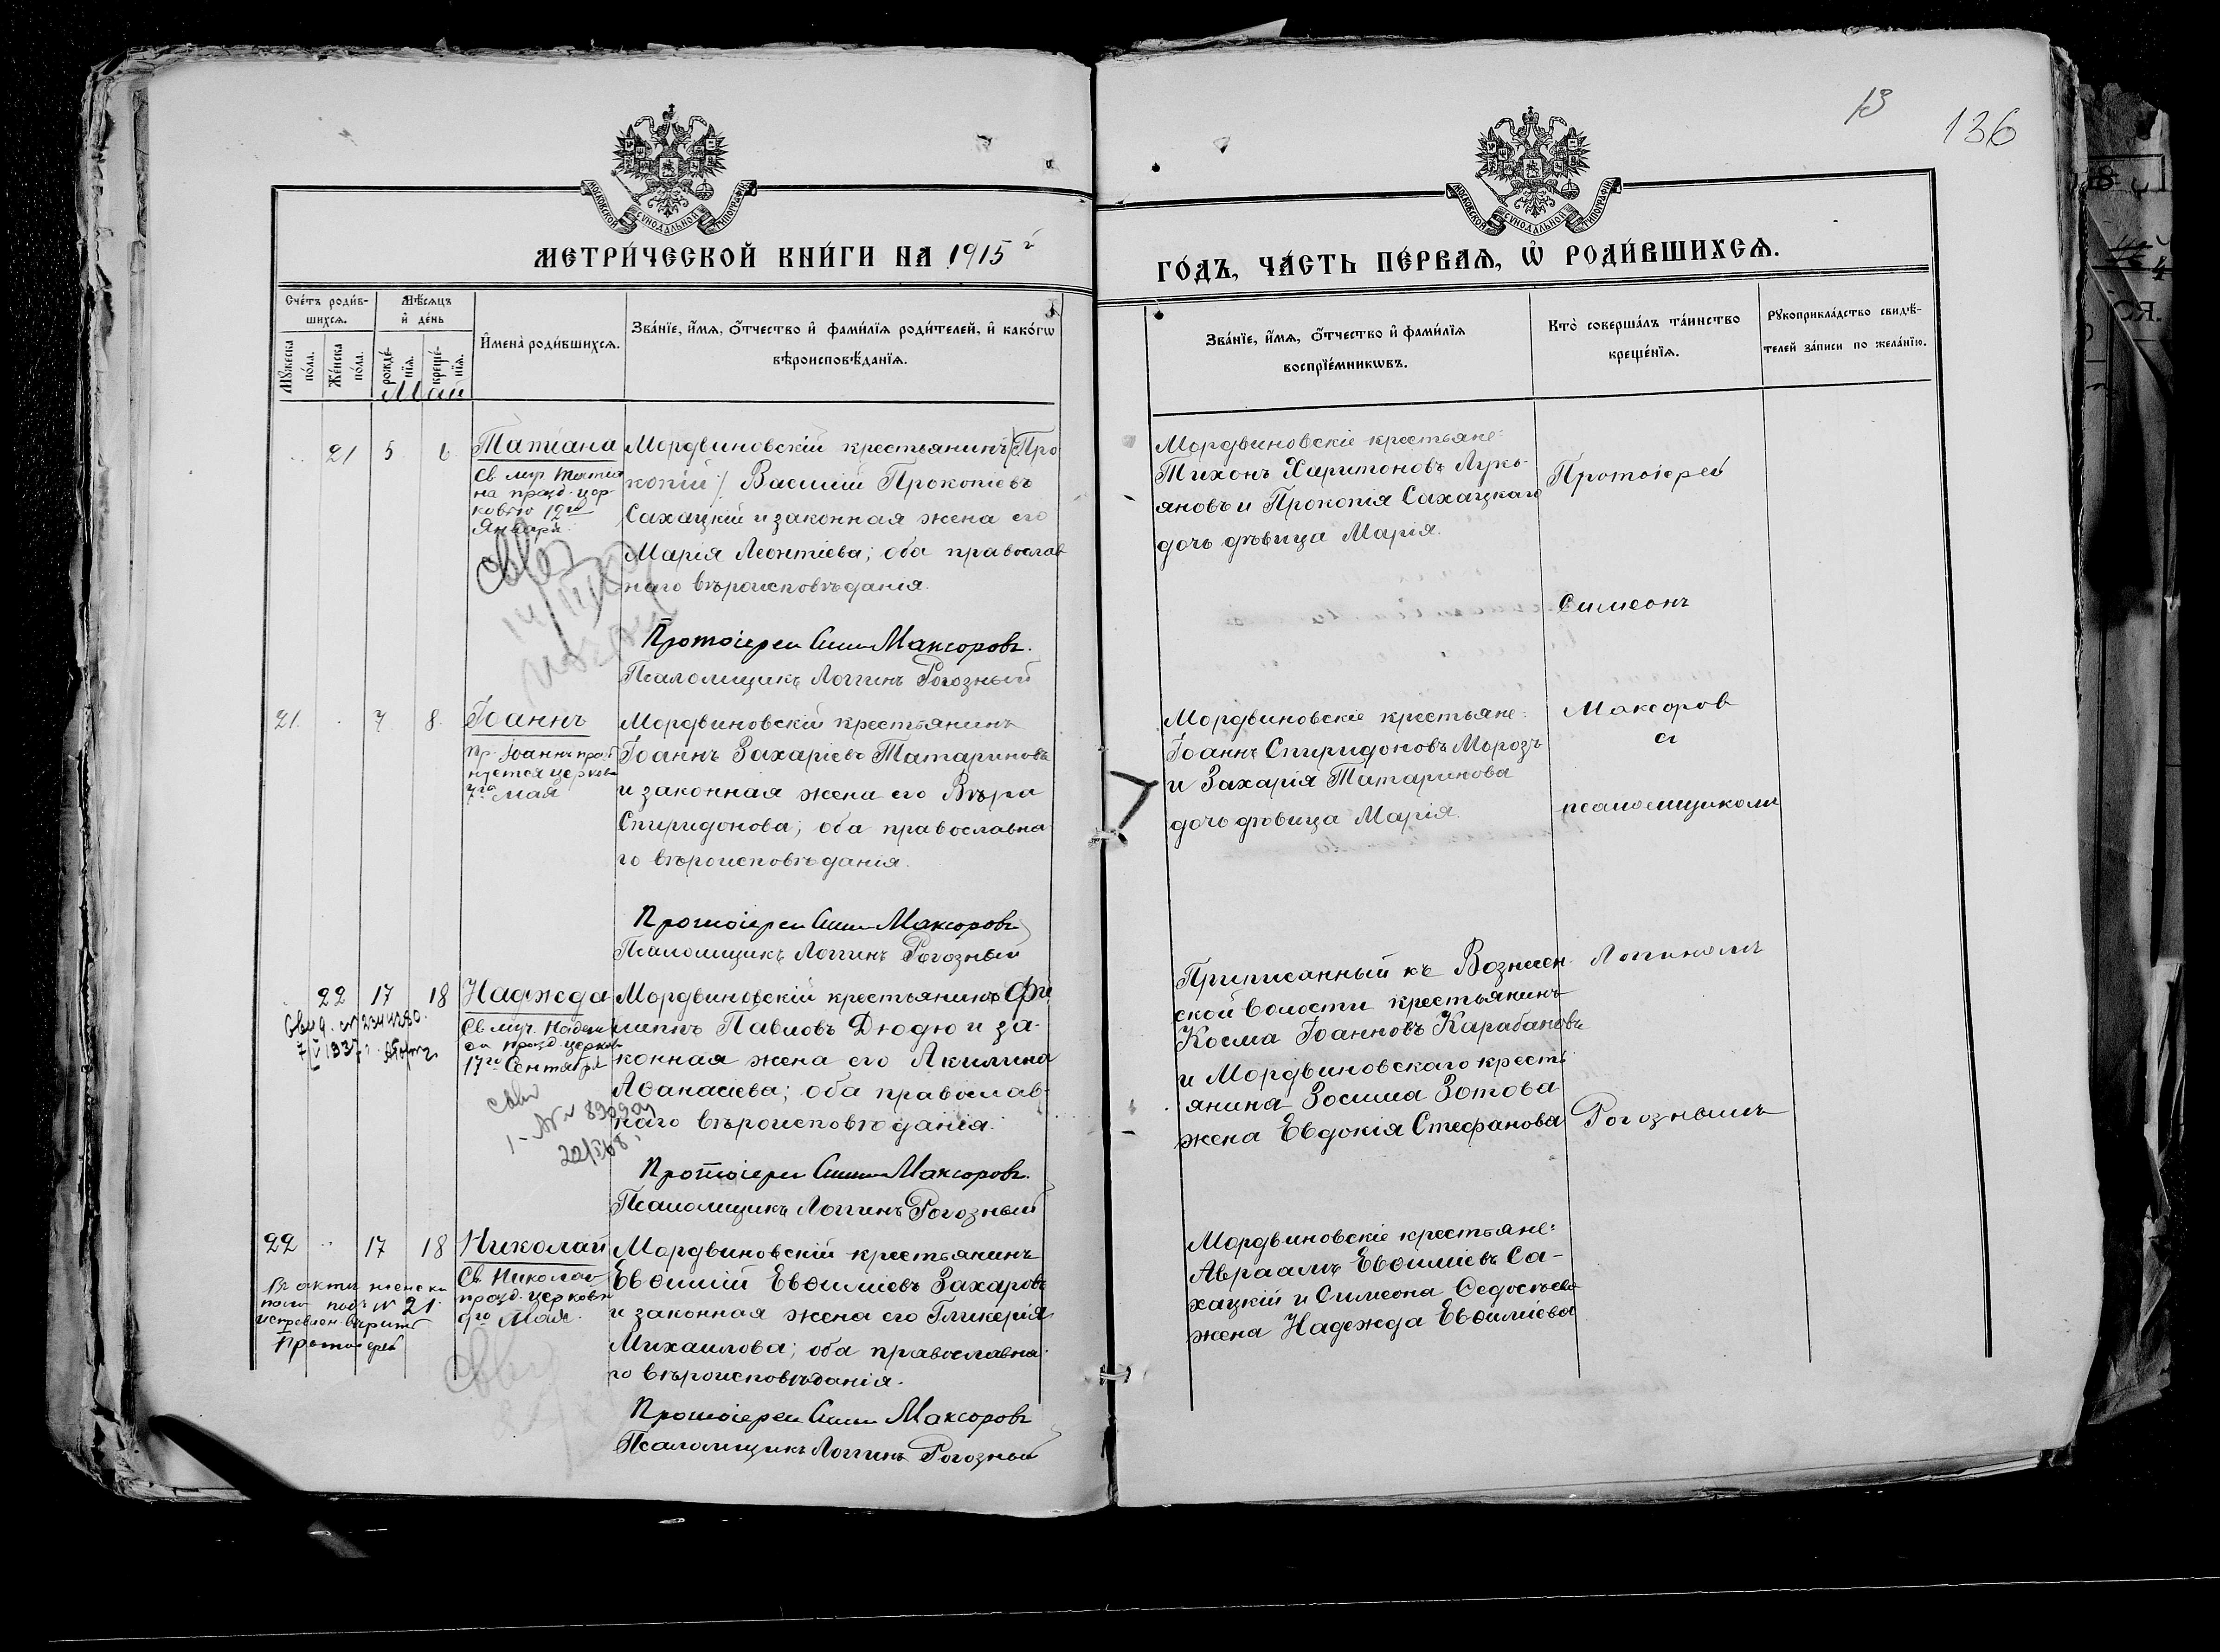 13
136
МОСКОВСКОЙ СѴНОДАЛЬНОЙ ТИПОГРАФІИ
МОСКОВСКОЙ СѴНОДАЛЬНОЙ ТИПОГРАФІИ
МЕТРИ́ЧЕСКОЙ КНИ́ГИ НА 1915 й
ГО́ДЪ, ЧА́СТЬ ПЕ́РВАѦ, Ѡ҆ РОДИ́ВШИХСѦ.
Сче́тъ роди́в-
шихсѧ.
Мѣ́сѧцъ
и҆ де́нь
Мꙋ́жеска
по́ла.
Же́нска
по́ла.
рожде́-
нїѧ.
креще́-
нїѧ.
И҆мена̀ роди́вшихсѧ.
Зва́нїе, и҆́мѧ, ѻ҆́тчество и҆ фами́лїѧ роди́телей, и҆ како́гѡ
вѣроисповѣ́данїѧ.
Зва́нїе, и҆́мѧ, ѻ҆́тчество и҆ фами́лїѧ
воспрїе́мникѡвъ.
Кто̀ соверша́лъ та́инство
креще́нїѧ.
Рꙋкоприкла́дство свидѣ́-
телей за́писи по жела́нїю.
Май
21 5 6 Татіана
Св. мур. Татіа
на празд. цер-
ковію 12го
Января
Мордвиновскій крестьянинъ (Про
копій) Василій Прокопіевъ
Сахацкій и законная жена его
Марія Леонтіева; оба православ
наго вѣроисповѣданія.
Протоіерей Сим Максоровъ.
Псаломщикъ Логгинъ Рогозный
Мордвиновскіе крестьяне:
Тихонъ Харитоновъ Лукь-
яновъ и Прокопія Сахацкаго
дочь дѣвица Марія.
Протоіерей
Симеонъ
Максоров
съ
псаломщикомъ
Логгиномъ
Рогознымъ
21 7 8 Іоаннъ
Пр. Іоаннъ празд
нуется церков
7го Мая
Мордвиновскій крестьянинъ
Іоаннъ Захаріевъ Татариновъ
и законная жена его Вѣра
Спиридонова; оба православна
го вѣроисповѣданія.
Протоіерей Сим Максоровъ
Псаломщикъ Логгинъ Рогозный
Мордвиновскіе крестьяне:
Іоаннъ Спиридоновъ Морозъ
и Захарія Татаринова
дочь дѣвица Марія.
22 17 18 Надежда
Св. муч. Надеж
да празд. церков
17го Сентября
Мордвиновскій крестьянинъ Фи
липпъ Павловъ Дюдю и за-
конная жена его Акилина
Аѳанасіева; оба православ-
наго вѣроисповѣданія.
Протоіерей Сим Максоровъ.
Псаломщикъ Логгинъ Рогозный
Приписанный къ Вознесен-
ской волости крестьянинъ
Косма Іоанновъ Карабановъ
и Мордвиновскаго кресть
янина Зосима Зотова
жена Евдокія Стефанова
22 17 18 Николай
Св. Николай
празд. церковію
9го Мая.
Мордвиновскій крестьянинъ
Евѳимій Евѳиміевъ Захаровъ
и законная жена его Гликерія
Михаилова; оба православна-
го вѣроисповѣданія.
Протоіерей Сим Максоровъ
Псаломщикъ Логгинъ Рогозный
Мордвиновскіе крестьяне:
Авраамъ Евѳиміевъ Са-
хацкій и Симеона Ѳедосѣева
жена Надежда Евѳиміева
Въ акты женска
пола подъ № 21
Протоіерей